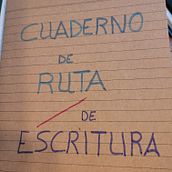 CUADERNO
DE
RUTA
DE
ESCRITURA